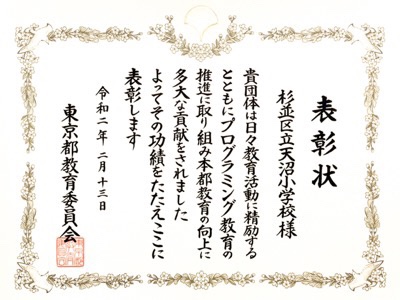 表彰状
杉並区立天沼小学校様
貴団体は日々教育活動に精励する
とともにプログラミング教育の
推進に取り組み本都教育の向上に
多大な貢献をされました
よってその功績をたたえここに
表彰します
令和二年二月十三日
東京都教育委員会